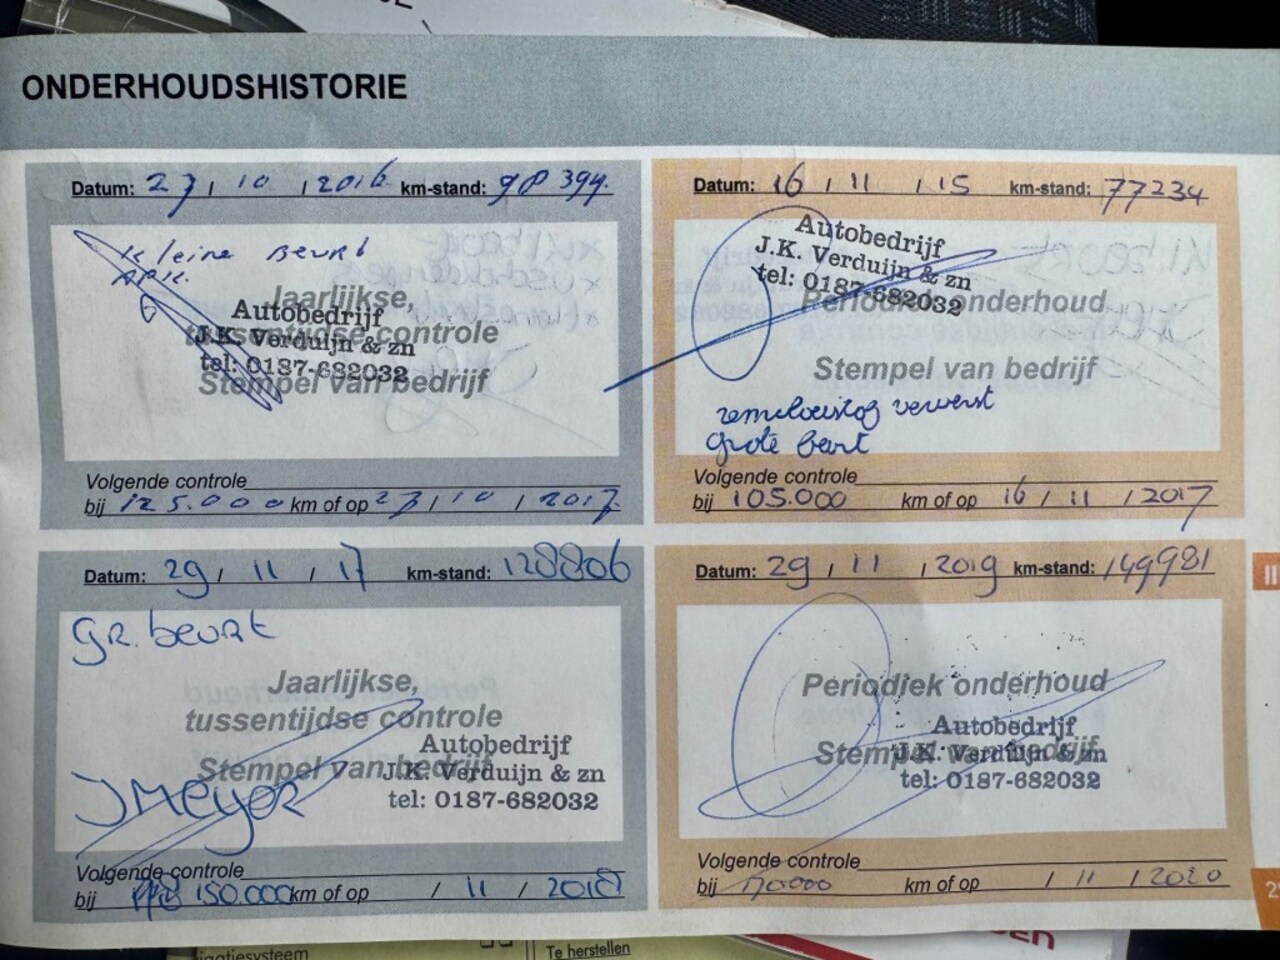 ONDERHOUDSHISTORIE
Datum: 27 / 10 / 2016 km-stand: 98 394.
Kleine Beurt
APK.
Jaarlijkse,
tussentijdse controle
Stempel van bedrijf
Autobedrijf
J.K. Verduijn & zn
tel: 0187-682032
Volgende controle
bij 125.000 km of op 27 / 10 / 2017.
Datum: 16 / 11 / 15 km-stand: 77234
Autobedrijf
J.K. Verduijn & zn
tel: 0187-682032
Periodiek onderhoud
Stempel van bedrijf
remvloeistof ververst
grote beurt
Volgende controle
bij 105.000 km of op 16 / 11 / 2017
Datum: 29 / 11 / 17 km-stand: 128806
gr. beurt
Jaarlijkse,
tussentijdse controle
Stempel van bedrijf
Autobedrijf
J.K. Verduijn & zn
tel: 0187-682032
JMeyer
Volgende controle
bij 150.000 km of op / 11 / 2018
Datum: 29 / 11 / 2019 km-stand: 149981
Periodiek onderhoud
Stempel van bedrijf
Autobedrijf
J.K. Verduijn & zn
tel: 0187-682032
Volgende controle
bij 170000 km of op / 11 / 2020
II
Te herstellen